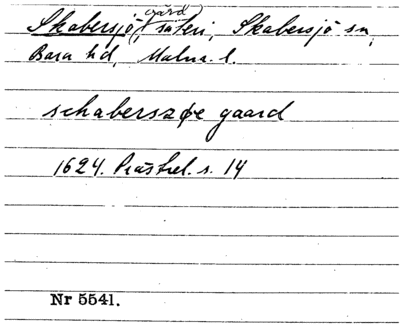 Skabersjö gård, säteri, Skabersjö sn,
Bara hd, Malm. l.
schaberszøe gaard
1624. Prästrel. s. 14
Nr 5541.